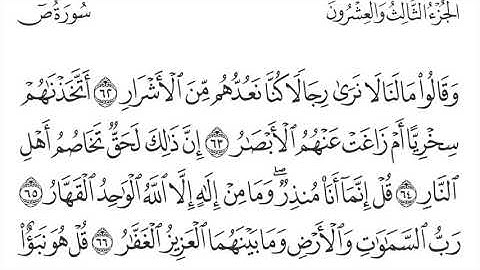 سُورَةُ صٓ الجُزْءُ الثَّالِثُ وَالعِشْرُونَ
وَقَالُوا۟ مَا لَنَا لَا نَرَىٰ رِجَالًا كُنَّا نَعُدُّهُم مِّنَ ٱلْأَشْرَارِ ٦٢ أَتَّخَذْنَٰهُمْ
سِخْرِيًّا أَمْ زَاغَتْ عَنْهُمُ ٱلْأَبْصَٰرُ ٦٣ إِنَّ ذَٰلِكَ لَحَقٌّ تَخَاصُمُ أَهْلِ
ٱلنَّارِ ٦٤ قُلْ إِنَّمَآ أَنَا۠ مُنذِرٌ ۖ وَمَا مِنْ إِلَٰهٍ إِلَّا ٱللَّهُ ٱلْوَٰحِدُ ٱلْقَهَّارُ ٦٥
رَبُّ ٱلسَّمَٰوَٰتِ وَٱلْأَرْضِ وَمَا بَيْنَهُمَا ٱلْعَزِيزُ ٱلْغَفَّٰرُ ٦٦ قُلْ هُوَ نَبَؤٌا۟